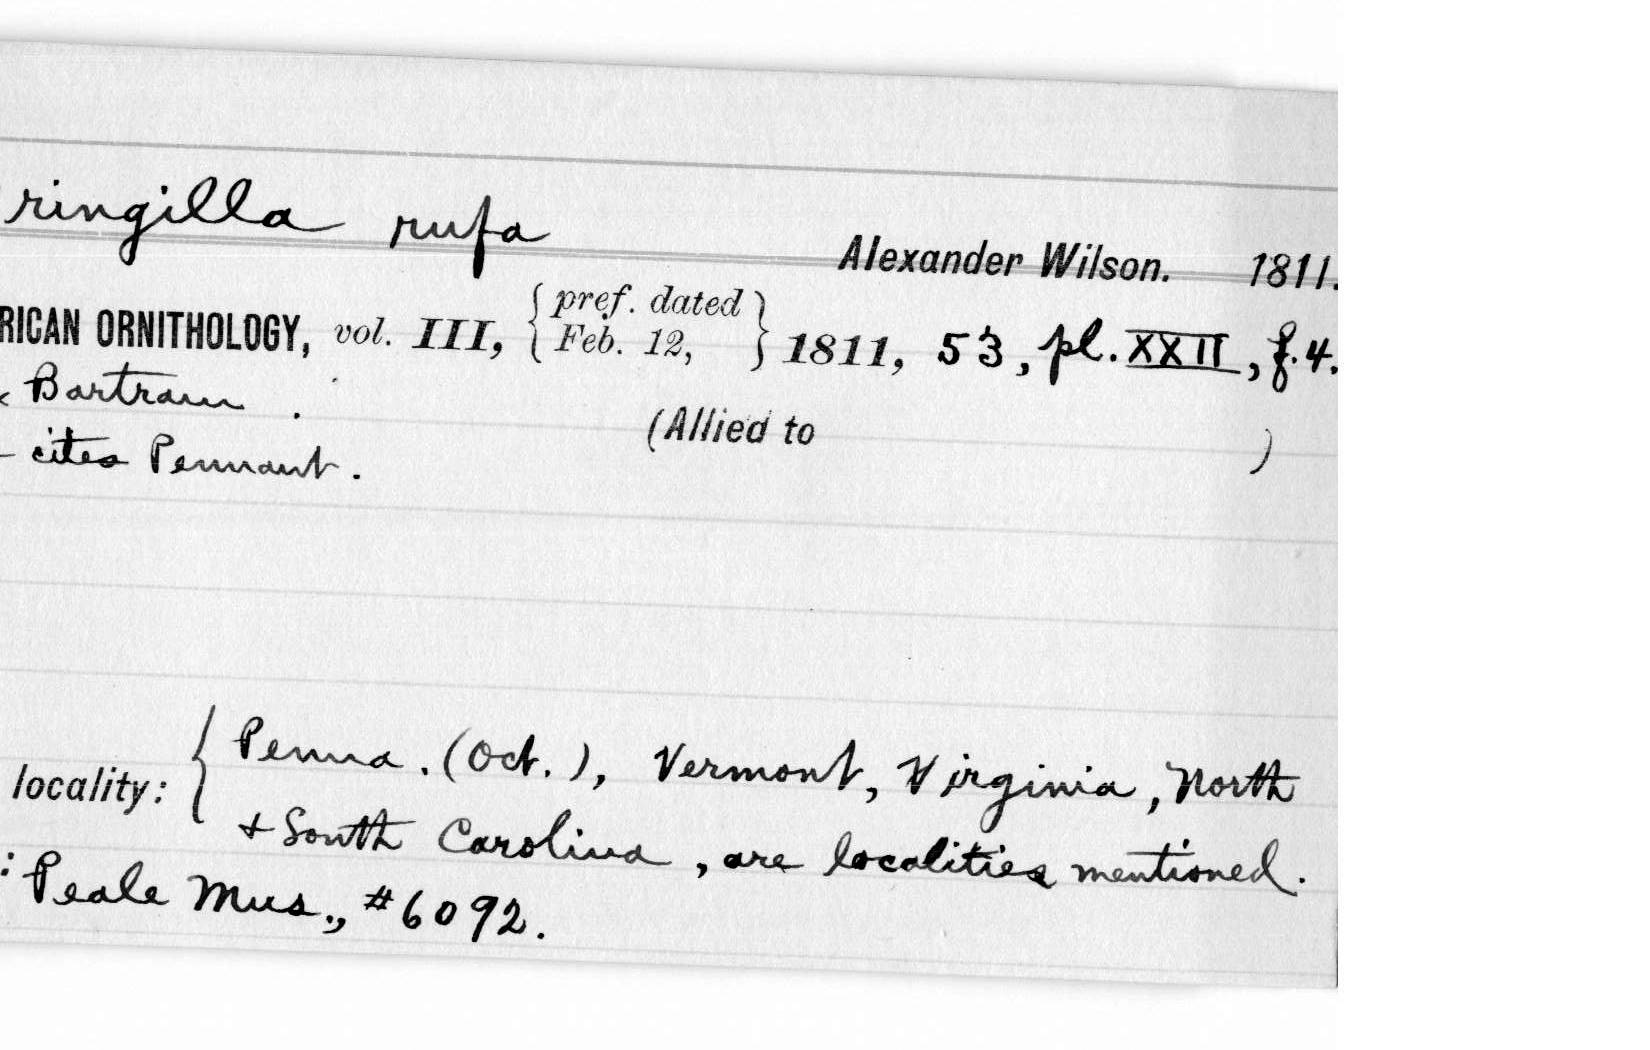 ringilla rufa
Alexander Wilson. 1811.
RICAN ORNITHOLOGY, vol. III, { pref. dated Feb. 12, } 1811, 53, pl. XXII, f. 4.
Bartram .
(Allied to )
- cites Pennant.
locality: { Penna. (Oct.), Vermont, Virginia, North
+ South Carolina, are localities mentioned.
: Peale Mus., #6092.